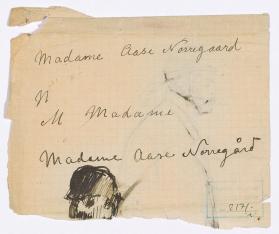 Madame Aase Nørregaard
N
M Madame
Madame Aase Nørregård